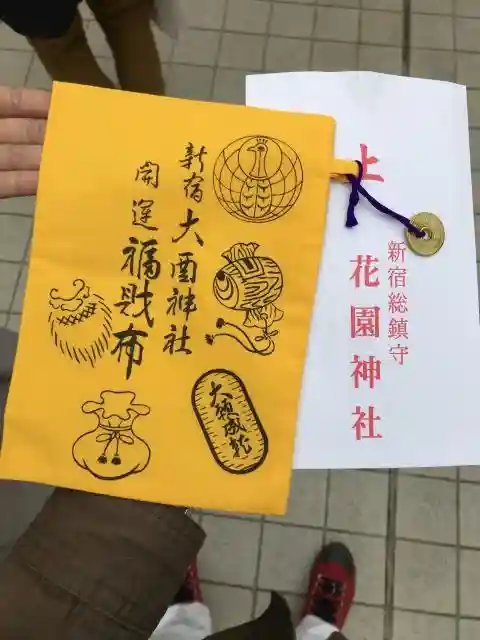 新宿大酉神社
開運福財布
大願成就
上
新宿総鎮守
花園神社